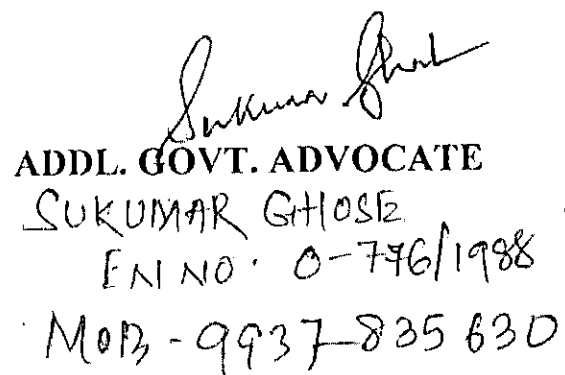 Sukumar Ghosh
ADDL. GOVT. ADVOCATE
SUKUMAR GHOSE
EN NO. O-776/1988
MOB - 9937-835 630